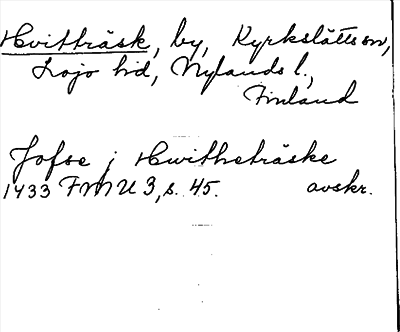 Hvitträsk, by, Kyrkslätts sn,
Lojo hd, Nylands l.,
Finland
Jofse i Hwittheträske
1433 FMU 3, s. 45. avskr.